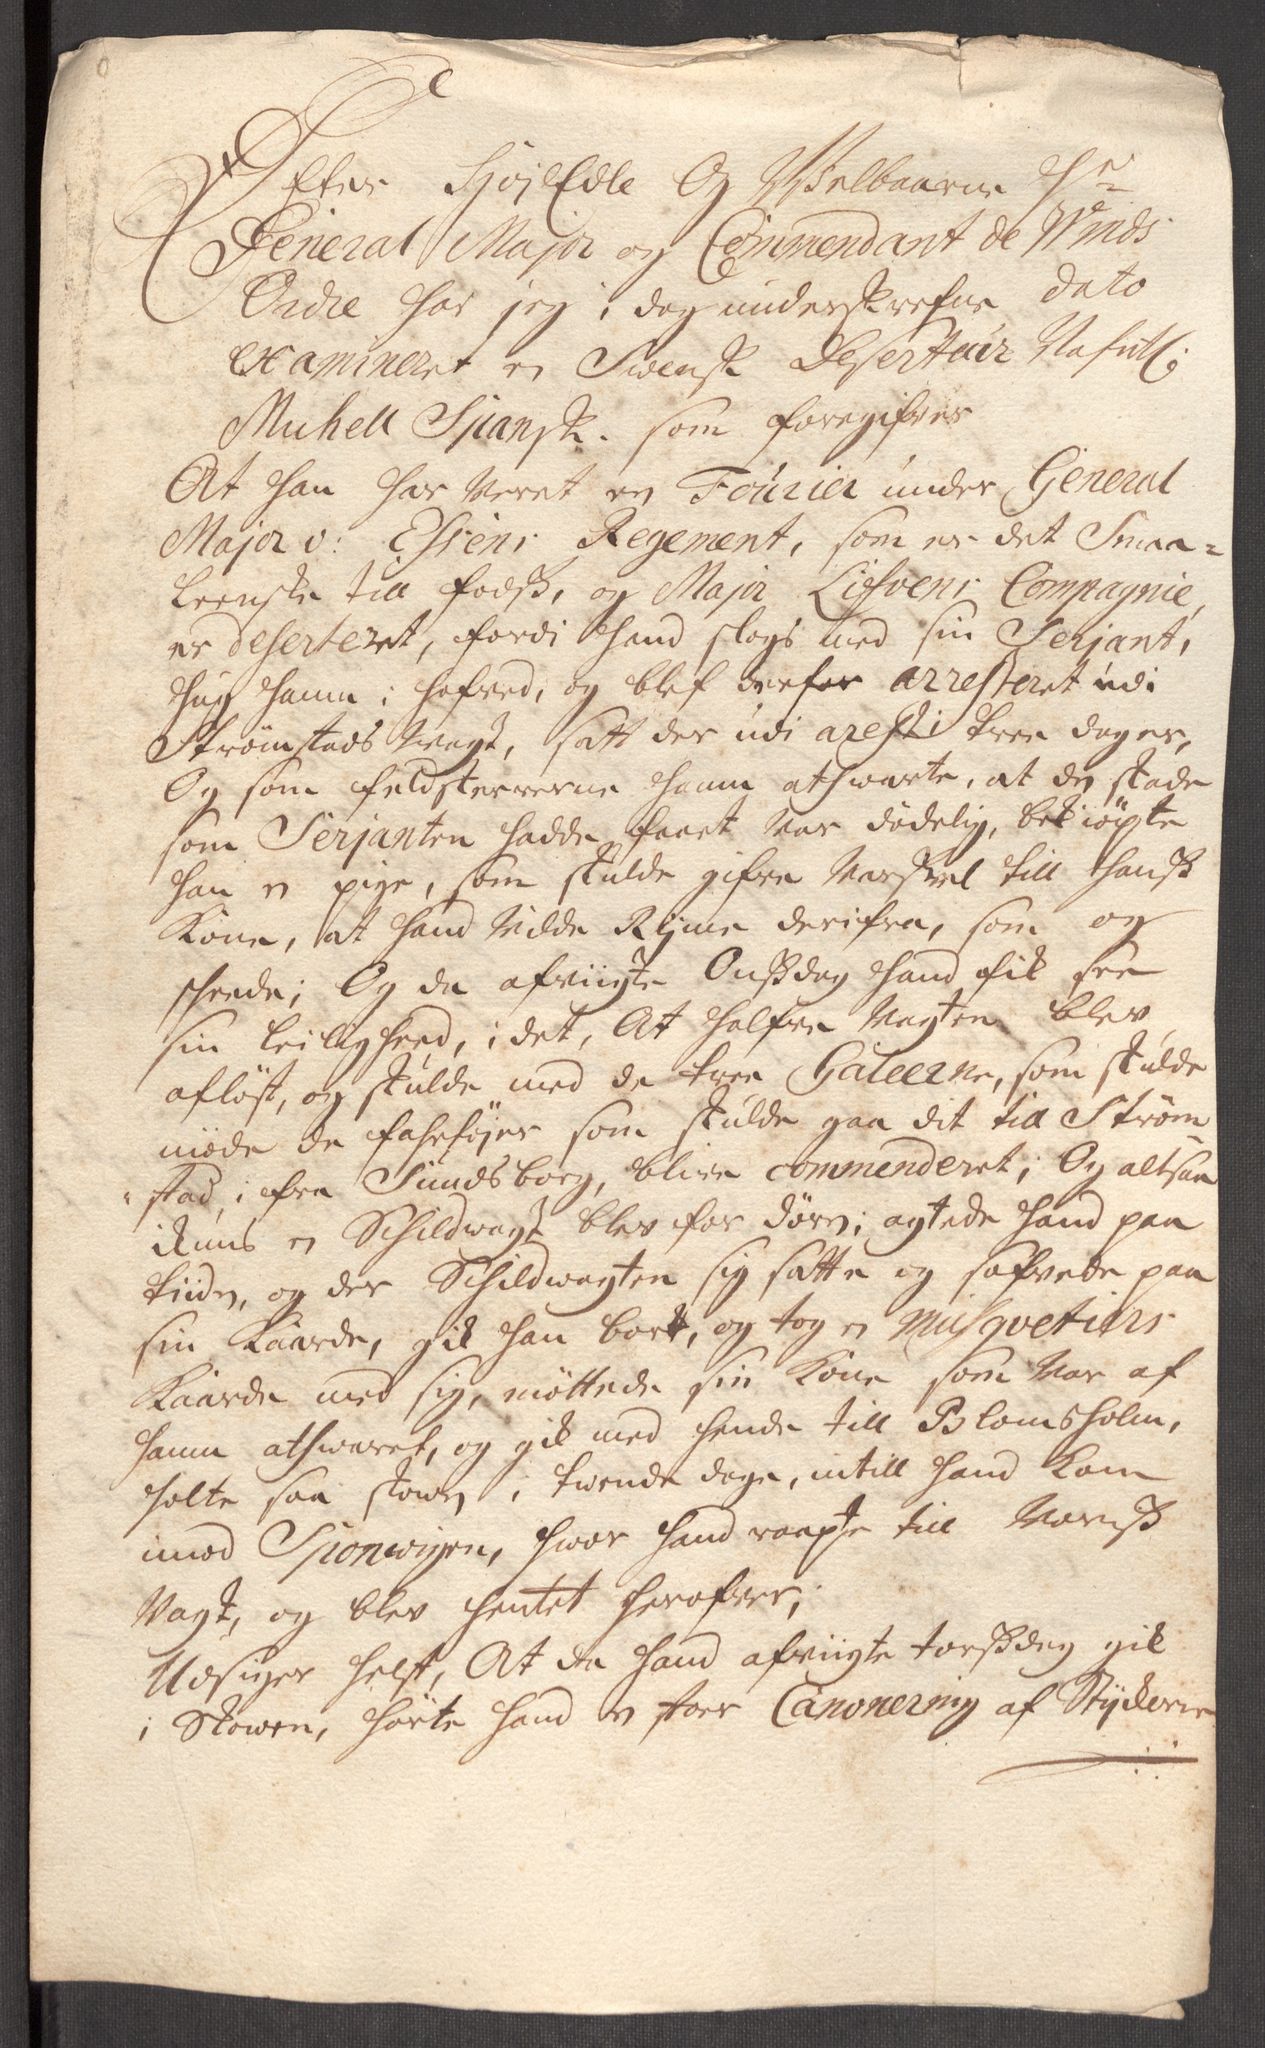 Efter Høj Edle Og Welbaarne Hr
General Major og Commendant de Winds
Ordre har jeg i dag underskrefne dato
examineret en Swensk Deserteur Nafnl:
Michell Spansk. som foregifver
At han har veret en Fourier under General
Major v: Essens Regement, som er det Smaa=
leenske till fodss, og Major Liesvens Compagnie,
er deserteret, fordi hand slogs med sin Serjant,
hug hamm i hofved, og blef derfor arresteret udi
Strømstads Wagt, satt der udi arest i tree dager,
Og som feldskererne hamm athwarte, at den skade
som Serjanten hadde faaet var dødelig, bekiøpte
han en pige, som skulde gifve varskel till hanss
Kone, at hand vilde Rijme derifra, som og
scheede; Og da afvigte Onssdag hand fik see
sin leiligheed, i det, At halfve Wagten blev
afløst, og skulde med de tree Galeerne, som skulde
møde de fahrtøjer som skulde gaa dit till Strøm
"stad, i fra Sundsborg, blive commenderet; Og altsaa
ikuns en Schildwagt blev for dørn; agtede hand paa
tiiden, og der Schildwagten sig satte og sofvede paa
sin Kaarde, gik han bort, og tog en Musqvetiers
Kaarde med sig, møttede sin Kone som var af
hamm athwaret, og gik med hende till Blomsholm,
holte saa skowen i twende dage, intill hand kom
imod Sponwigen, hwor hand raapte till Vorss
Wagt, og blev hentet herofver;
Udsiger helst, At da hand afvigte torssdag gik
i Skowen, hørte hand en stoer Canonering af Stÿkerne